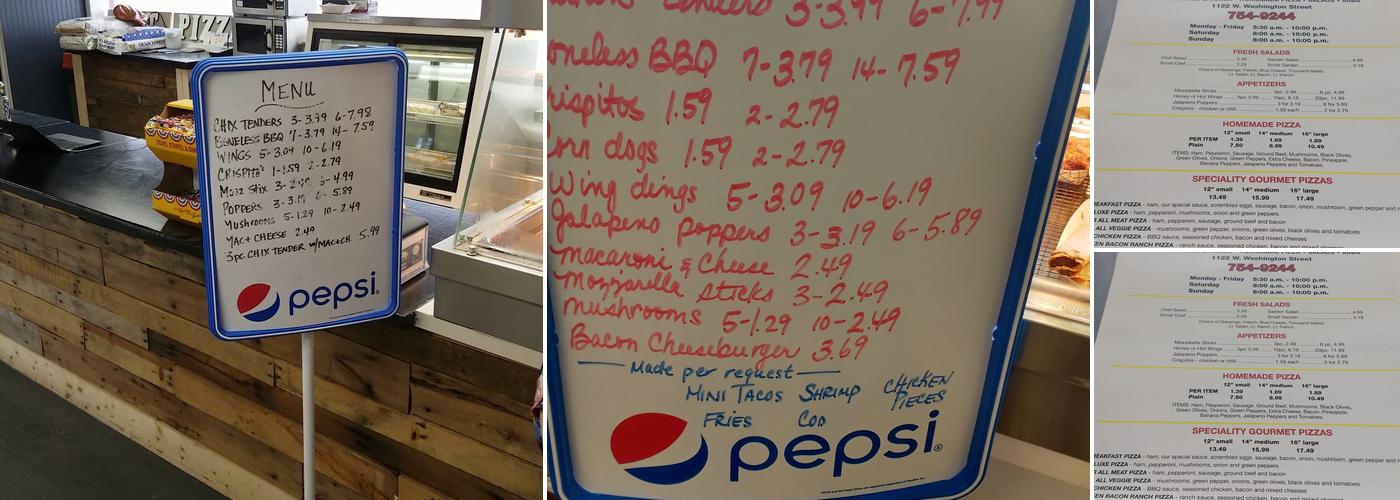 PIZZ
MENU
CHIX TENDERS 3-3.99 6-7.98
BONELESS BBQ 7-3.79 14-7.59
WINGS 5-3.09 10-6.19
CRISPITO' 1-1.59 2-2.79
MOZZ STIX 3- 6-4.99
POPPERS 3-3.19 6-5.89
MUSHROOMS 5-1.29 10-2.49
MAC+CHEESE 2.49
3pc. CHIX TENDER w/MAC+CH. 5.99
pepsi
3-3.99 6-7.99
oneless BBQ 7-3.79 14-7.59
rispitos 1.59 2-2.79
Corn dogs 1.59 2-2.79
Wing dings 5-3.09 10-6.19
Jalapeno poppers 3-3.19 6-5.89
macaroni & Cheese 2.49
Mozzarella Sticks 3-2.49
mushrooms 5-1.29 10-2.49
Bacon Cheeseburger 3.69
Made per request
MINI TACOS SHRIMP CHICKEN PIECES
FRIES COD
pepsi
1122 W. Washington Street
754-9244
Monday - Friday 5:30 a.m. - 10:00 p.m.
Saturday 6:00 a.m. - 10:00 p.m.
Sunday 8:00 a.m. - 10:00 p.m.
FRESH SALADS
Chef Salad 5.59 Garden Salad 4.99
Small Chef 3.29 Small Garden 3.19
Choice of Dressings: French, Blue Cheese, Thousand Island,
Lt. Italian, Lt. Ranch, Lt. French
APPETIZERS
Mozzarella Sticks 3pc. 2.49 6 pc. 4.99
Honey or Hot Wings 5pc 3.09 10pc. 6.19 20pc. 11.99
Jalapeno Poppers 3 for 3.19 6 for 5.89
Crispitos - chicken or chili 1.59 each 2 for 2.79
HOMEMADE PIZZA
12" small 14" medium 16" large
PER ITEM 1.39 1.69 1.89
Plain 7.50 8.99 10.49
ITEMS: Ham, Pepperoni, Sausage, Ground Beef, Mushrooms, Black Olives,
Green Olives, Onions, Green Peppers, Extra Cheese, Bacon, Pineapple,
Banana Peppers, Jalapeno Peppers and Tomatoes.
SPECIALITY GOURMET PIZZAS
12" small 14" medium 16" large
13.49 15.99 17.49
EAKFAST PIZZA - ham, our special sauce, scrambled eggs, sausage, bacon, onion, mushroom, green pepper and
LUXE PIZZA - ham, pepperoni, mushrooms, onion and green peppers
ALL MEAT PIZZA - ham, pepperoni, sausage, ground beef and bacon
ALL VEGGIE PIZZA - mushrooms, green pepper, onions, green olives, black olives and tomatoes
CHICKEN PIZZA - BBQ sauce, seasoned chicken, bacon and mixed cheeses
EN BACON RANCH PIZZA - ranch sauce, seasoned chicken, bacon and mixed
1122 W. Washington Street
754-9244
Monday - Friday 5:30 a.m. - 10:00 p.m.
Saturday 6:00 a.m. - 10:00 p.m.
Sunday 8:00 a.m. - 10:00 p.m.
FRESH SALADS
Chef Salad 5.59 Garden Salad 4.99
Small Chef 3.29 Small Garden 3.19
Choice of Dressings: French, Blue Cheese, Thousand Island,
Lt. Italian, Lt. Ranch, Lt. French
APPETIZERS
Mozzarella Sticks 3pc. 2.49 6 pc. 4.99
Honey or Hot Wings 5pc 3.09 10pc. 6.19 20pc. 11.99
Jalapeno Poppers 3 for 3.19 6 for 5.89
Crispitos - chicken or chili 1.59 each 2 for 2.79
HOMEMADE PIZZA
12" small 14" medium 16" large
PER ITEM 1.39 1.69 1.89
Plain 7.50 8.99 10.49
ITEMS: Ham, Pepperoni, Sausage, Ground Beef, Mushrooms, Black Olives,
Green Olives, Onions, Green Peppers, Extra Cheese, Bacon, Pineapple,
Banana Peppers, Jalapeno Peppers and Tomatoes.
SPECIALITY GOURMET PIZZAS
12" small 14" medium 16" large
13.49 15.99 17.49
EAKFAST PIZZA - ham, our special sauce, scrambled eggs, sausage, bacon, onion, mushroom, green pepper and
LUXE PIZZA - ham, pepperoni, mushrooms, onion and green peppers
ALL MEAT PIZZA - ham, pepperoni, sausage, ground beef and bacon
ALL VEGGIE PIZZA - mushrooms, green pepper, onions, green olives, black olives and tomatoes
CHICKEN PIZZA - BBQ sauce, seasoned chicken, bacon and mixed cheeses
EN BACON RANCH PIZZA - ranch sauce, seasoned chicken, bacon and mixed